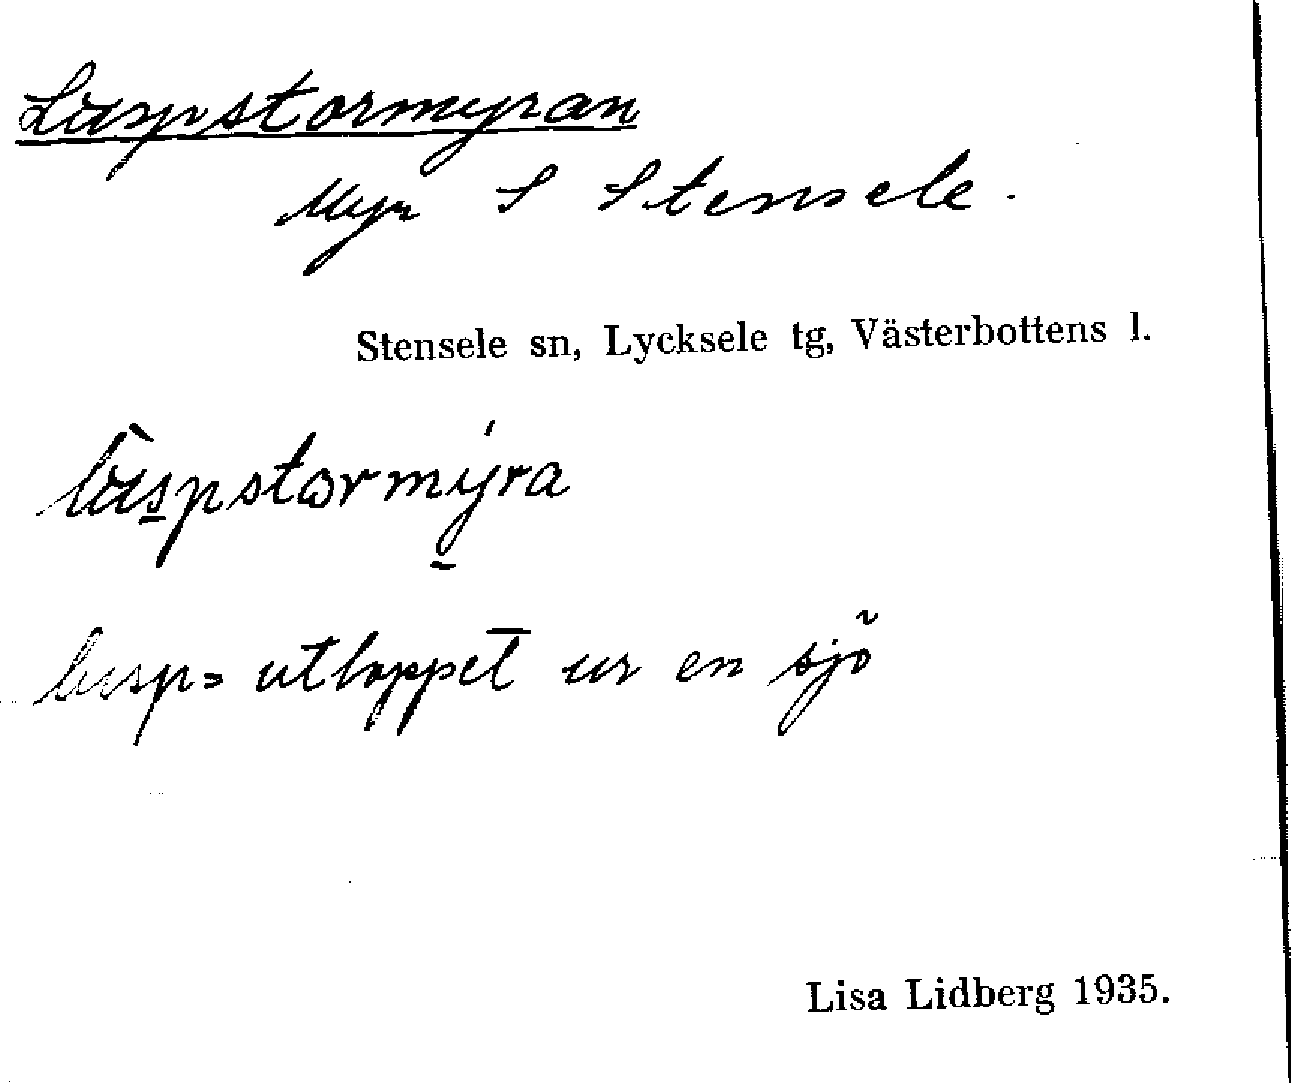 Luspstormyran
Myr S Stensele.
Stensele sn, Lycksele tg, Västerbottens l.
lùspstormýra
lusp= utloppet ur en sjö
Lisa Lidberg 1935.